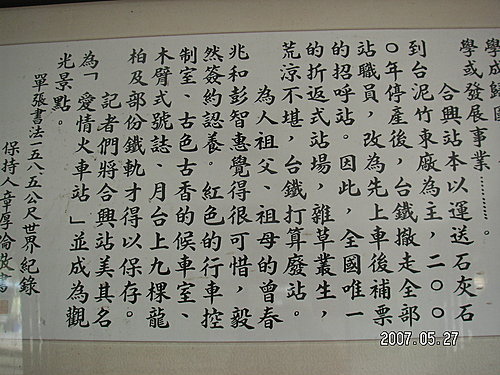 學成歸國
學或發展事業………。
合興站本以運送石灰石
到台泥竹東廠為主，二〇〇
〇年停產後，台鐵撤走全部
站職員，改為先上車後補票
的招呼站。因此，全國唯一
的折返式站場，雜草叢生，
荒涼不堪，台鐵打算廢站。
為人祖父、祖母的曾春
兆和彭智惠覺得很可惜，毅
然簽約認養。紅色的行車控
制室、古色古香的候車室、
木臂式號誌、月台上九棵龍
柏及部份鐵軌才得以保存。
記者們將合興站美其名
為「愛情火車站」並成為觀
光景點。
單張書法一五八五公尺世界紀錄
保持人章厚倫
2007.05.27